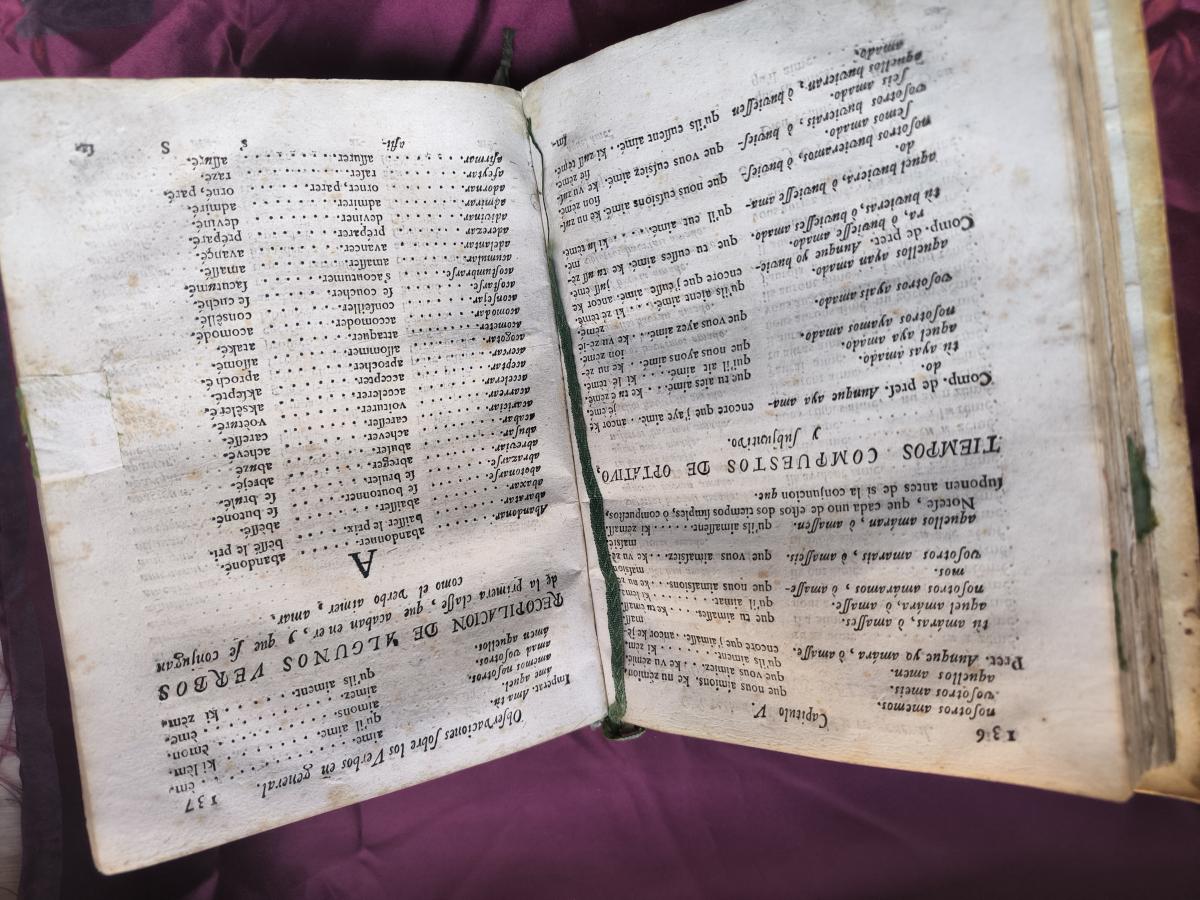 136 Capitulo V.
noſotros amemos. que nous aimions. Ke nu zèmion
voſotros ameis. que vous aimiez. . . ke vu zèmié.
aquellos amen. qu'ils aiment. . . . . ki zèm.
Pret. Aunque yo amára, ò amaſſe. encore que j'aimaſſe. . . ancor ke jè-
maſſ
tù amáras, ò amaſſes. que tu aimaſſes. . . . . ke tu èmaſſ
aquel amára, ò amaſſe. qu'il aimat. . . . . . ke lèma
noſotros amáramos, ò amaſſe- que nous aimaſsions. . . . ke nu zè
mos. maſsion
voſotros amarais, ò amaſſeis. que vous aimaſsiez. . . . ke vu zè
maſsié
aquellos amáran, ò amaſſen. qu'ils aimaſſent. . . . . ki zèmaſſ.
Noteſe, que cada uno de eſtos dos tiempos ſimples, ò compueſtos,
ſuponen antes de si la conjuncion que.
TIEMPOS COMPUESTOS DE OPTATIVO,
y ſubjuntivo.
Comp. de preſ. Aunque aya ama- encore que j'aye aimé. . . ancor ke
do. jé èmé
tù ayas amado. que tu aies aimé. . . ke tu è zèmé
aquel aya amado. qu'il ait aimé. . . ki lè tèmé.
noſotros ayamos amado. que nous ayons aimé. . . ke nu zè-
ion zèmé
voſotros ayais amado. que vous ayez aimé. . . ke vu zè-ié
zèmé.
aquellos ayan amado. qu'ils aient aimé. . . . ki zè tèmé.
Comp. de pret. Aunque yo huvie- encore que j'euſſe aimé. ancor ke
ra, ò huvieſſe amado. juſſ èmé.
tù huvieras, ò huvieſſes amado. que tu euſſes aimé. . ke tu uſſ zè-
mé
aquel huviera, ò huvieſſe ama- qu'il eut aimé. . . . . . ki lu tèmé.
do.
noſotros huvieramos, ò huvieſ- que nous euſsions aimé. ke nu zuſ-
ſemos amado. ſion zèmé
voſotros huvierais, ò huvieſ- que vous euſsiez aimé. ke vu zuſ-
ſeis amado. ſié zèmé.
aquellos huvieran, ò huvieſſen qu'ils euſſent aimé. . ki zuſſ tèmé.
amado.
Im-
Obſervaciones ſobre los Verbos en general. 137
Imperat. Ama tù. aime. . . . . . . . . èm.
ame aquel. qu'il aime. . . . . . . ki lèm.
amemos noſotros. aimons. . . . . . . . èmon.
amad voſotros. aimez. . . . . . . . èmé.
amen aquellos. qu'ils aiment. . . . . . ki zèm.
RECOPILACION DE ALGUNOS VERBOS
de la primera claſſe, que acaban en er, y que ſe conjugan
como el verbo aimer, amar.
A
Abandonar. . . . abandonner. . . . . abandoné.
abaratar. . . . baiſſer le prix. . . . bèſſé le pri.
abaxar. . . . abaiſſer. . . . abèſſé.
abotonarſe. . . . ſe boutonner. . . . ſe butoné.
abrazarſe. . . . ſe bruler. . . . ſe brulé.
abreviar. . . . abreger. . . . abrejé.
abuſar. . . . abuſer. . . . abuzé.
acabar. . . . achever. . . . achevé.
acariciar. . . . careſſer. . . . careſſé.
acarrear. . . . voiturer. . . . voèturé.
accelerar. . . . accelerer. . . . akſeleré.
aceptar. . . . accepter. . . . aklepté.
acercar. . . . aprocher. . . . aproché.
acogotar. . . . aſſommer. . . . aſſomé.
acometer. . . . attaquer. . . . ataké.
acomodar. . . . accomoder. . . . acomodé.
aconſejar. . . . conſeiller. . . . conſèllé.
acoſtarſe. . . . ſe coucher. . . . ſe cuché.
acoſtumbrarſe. . . . s'acoutumer. . . . ſacutumé.
acumular. . . . amaſſer. . . . amaſſé.
adelantar. . . . avancer. . . . avançé.
aderezar. . . . préparer. . . . préparé.
adivinar. . . . deviner. . . . deviné.
admirar. . . . admirer. . . . admiré.
adornar. . . . orner, parer. . . . orné, paré.
afeytar. . . . raſer. . . . razé.
afirmar. . . . aſſurer. . . . aſſuré.
S